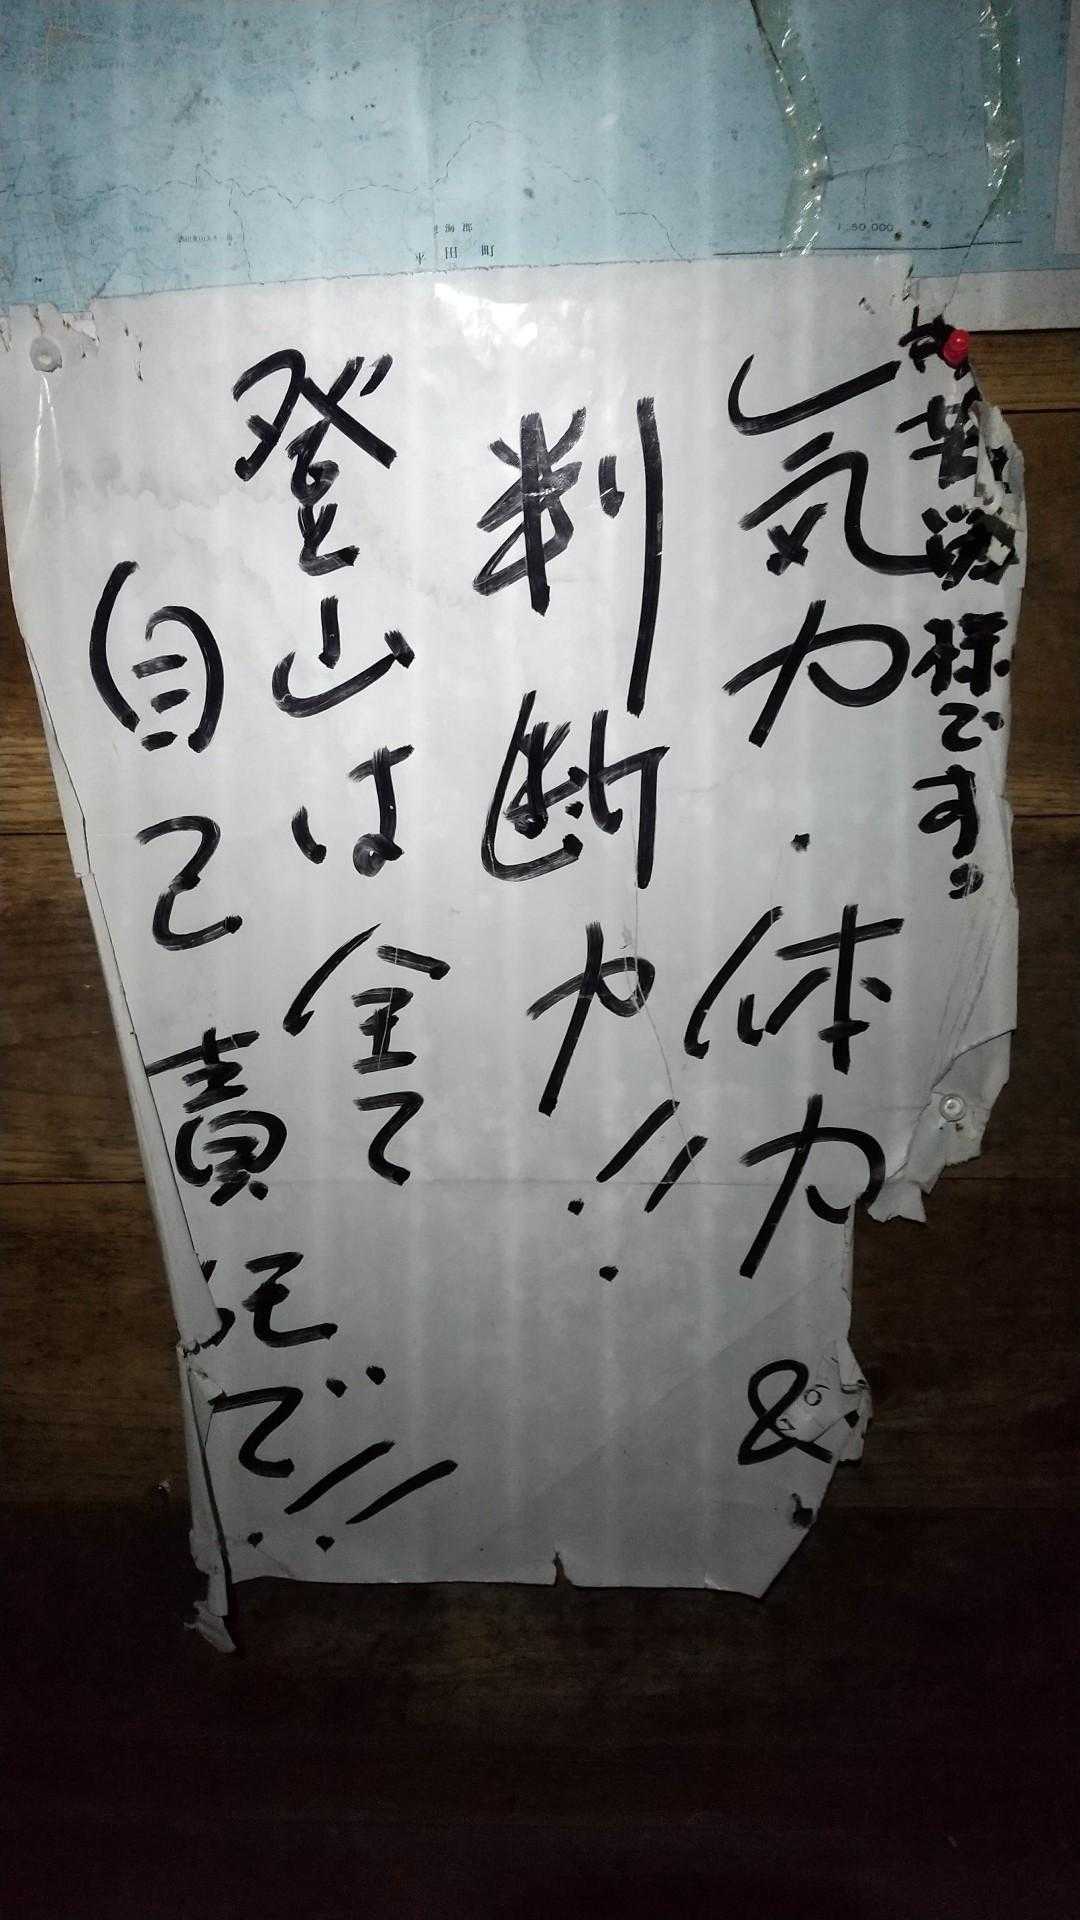 平田町
1:50,000
苦労様です。
気力・体力&
判断力!!
登山は全て
自己責任で!!